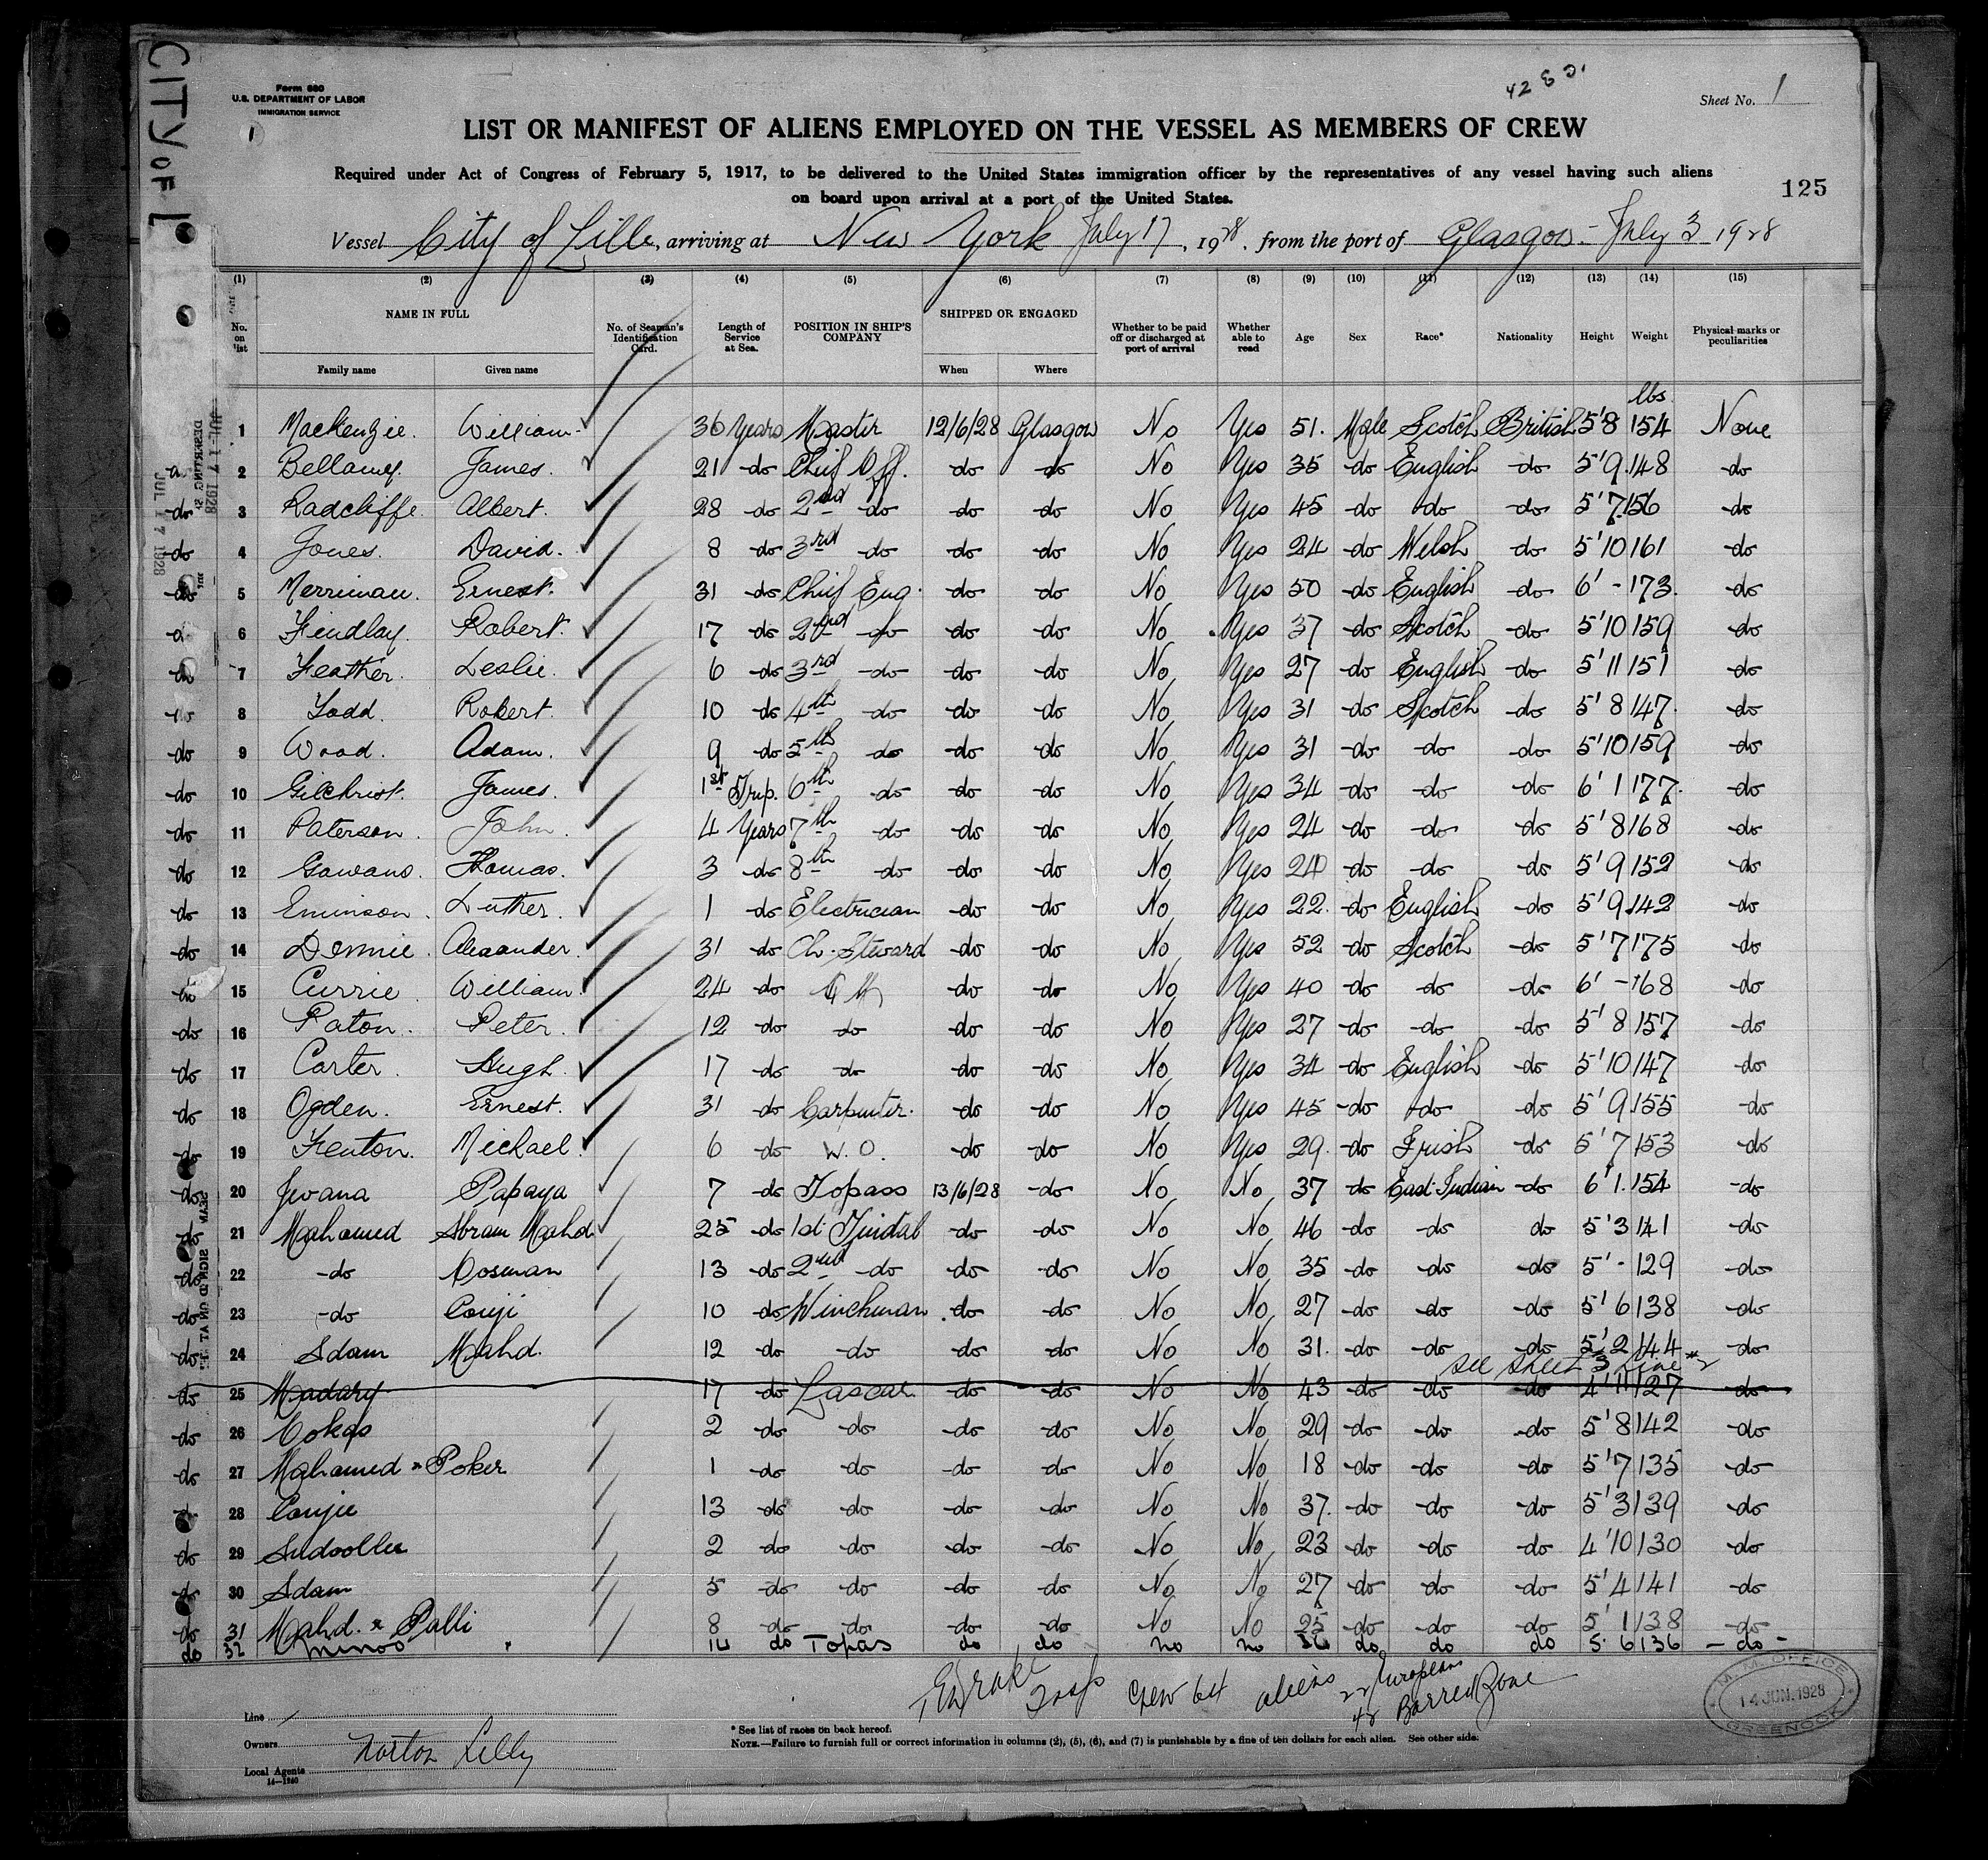 CITY OF L
Form 680
U.S. DEPARTMENT OF LABOR
IMMIGRATION SERVICE
1
Sheet No. 1
LIST OR MANIFEST OF ALIENS EMPLOYED ON THE VESSEL AS MEMBERS OF CREW
Required under Act of Congress of February 5, 1917, to be delivered to the United States immigration officer by the representatives of any vessel having such aliens
on board upon arrival at a port of the United States.
125
Vessel City of Lille, arriving at New York July 17, 1928, from the port of Glasgow - July 3 1928
(1) (2) (3) (4) (5) (6) (7) (8) (9) (10) (11) (12) (13) (14) (15)
No. on list NAME IN FULL Family name Given name No. of Seaman's Identification Card. Length of Service at Sea. POSITION IN SHIP'S COMPANY SHIPPED OR ENGAGED When Where Whether to be paid off or discharged at port of arrival Whether able to read Age Sex Race* Nationality Height Weight Physical marks or peculiarities
lbs
1 Mackenzie. William. 36 Years Master 12/6/28 Glasgow No Yes 51. Male Scotch British 5'8 154 None
2 Bellamy. James. 21 -do Chief Off. do do No Yes 35 -do English -do 5'9. 148 do
do 3 Radcliffe. Albert. 28 -do 2nd do do do No Yes 45 -do do do 5'7. 156 do
do 4 Jones. David. 8 do 3rd do do do No Yes 24 do Welsh do 5'10 161 do
do 5 Merriman. Ernest. 31 do Chief Eng. do do No Yes 50 do English do 6' - 173. do
6 Findlay. Robert. 17 do 2nd do do do No Yes 37 do Scotch do 5'10 159 do
do 7 Feather. Leslie. 6 do 3rd do do do No Yes 27 do English do 5'11 151 do
do 8 Todd. Robert. 10 do 4th do do do No Yes 31 do Scotch do 5'8 147. do
do 9 Wood. Adam. 9 do 5th do do do No Yes 31 do do do 5'10 159 do
do 10 Gilchrist. James. 1st Trip. 6th do do do No Yes 34 do do do 6'1 177. do
do 11 Paterson. John. 4 Years 7th do do do No Yes 24 do do do 5'8 168 do
do 12 Gawans. Thomas. 3 do 8th do do do No Yes 24 do do do 5'9 152 do
do 13 Eminson. Luther. 1 do Electrician do do No Yes 22. do English do 5'9. 142 do
do 14 Dennie. Alexander. 31 do Ch. Steward do do No Yes 52 do Scotch do 5'7 175 do
do 15 Currie William. 24 do do do No Yes 40 do do do 6' - 168 do
do 16 Paton. Peter. 12 do do do do No Yes 27 do do do 5'8 157 do
do 17 Carter. Hugh. 17 do do do do No Yes 34 do English do 5'10 147 do
do 18 Ogden. Ernest. 31 do Carpenter. do do No Yes 45 do do do 5'9. 155 do
do 19 Fenton. Michael. 6 do W.O. do do No Yes 29. do Irish do 5'7 153 do
do 20 Jivana Papaya 7 do Topass 13/6/28 do No No 37 do East-Indian do 6'1. 154 do
do 21 Mahamed Abram Mahd. 25 do 1st Tindal do do No No 46 do do do 5'3 141 do
do 22 do Cosman 13 do 2nd do do do No No 35 do do do 5' - 129 do
do 23 do Couji 10 do Winchman do do No No 27 do do do 5'6 138 do
do 24 Adam Mahd. 12 do do do do No No 31. do do do 5'2 144 do
see sheet 3 line #2
do 25 Madary 17 do Lascar do do No No 43 do do do 4'11 127 do
do 26 Cokas 2 do do do do No No 29 do do do 5'8 142 do
do 27 Mahamed x Poker 1 do do do do No No 18 do do do 5'7 135 do
do 28 Coujie 13 do do do do No No 37. do do do 5'3 139 do
do 29 Audoollee 2 do do do do No No 23 do do do 4'10 130 do
do 30 Adam 5 do do do do No No 27 do do do 5'4 141 do
do 31 Mahd. x Palli 8 do do do do No No 25 do do do 5'1 138 do
do 32 Minoo 14 do Topas do do no no 36 do do do 5. 6 136 - do -
Insp Crew 64 aliens 22 European
42 Barred Zone
M.M. OFFICE
14 JUN. 1928
GREENOCK
Line
Owners
Norton Lilly
Local Agents
14-1240
* See list of races on back hereof.
NOTE.—Failure to furnish full or correct information in columns (2), (5), (6), and (7) is punishable by a fine of ten dollars for each alien. See other side.
JUL 17 1928